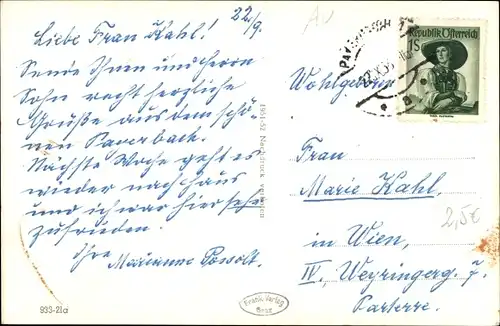 22./9.
Liebe Frau Kahl!
Sende Ihnen und Herrn
Sohn recht herzliche
Grüße aus dem schö-
nen Payerbach.
Nächste Woche geht es
wieder nach Haus
und ich war hier sehr
zufrieden.
Ihre
Marianne
933-21a
1951-52 Nachdruck verboten
Frank-Verlag
Graz
Republik Österreich
1S
Wohlgeboren
Frau
Marie Kahl
in Wien,
IV., Weyringerg. 7
Parterre.
2,5€